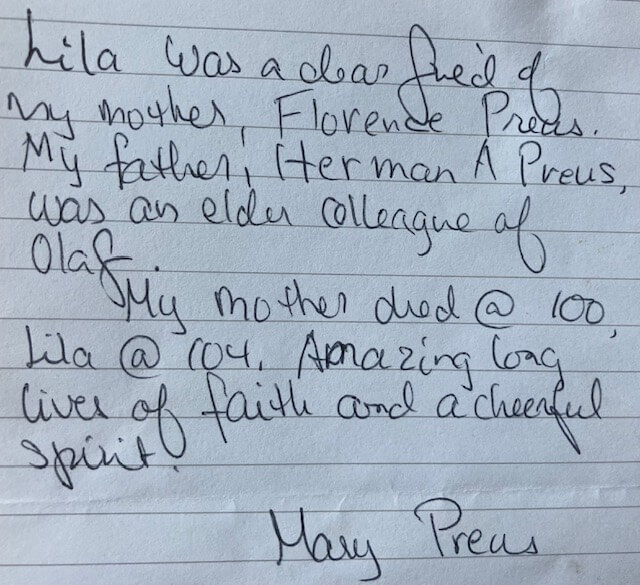 Lila was a dear friend of
my mother, Florence Preus.
My father, Herman A Preus,
was an elder colleague of
Olaf.
My mother died @ 100,
Lila @ 104. Amazing long
lives of faith and a cheerful
spirit.
Mary Preus